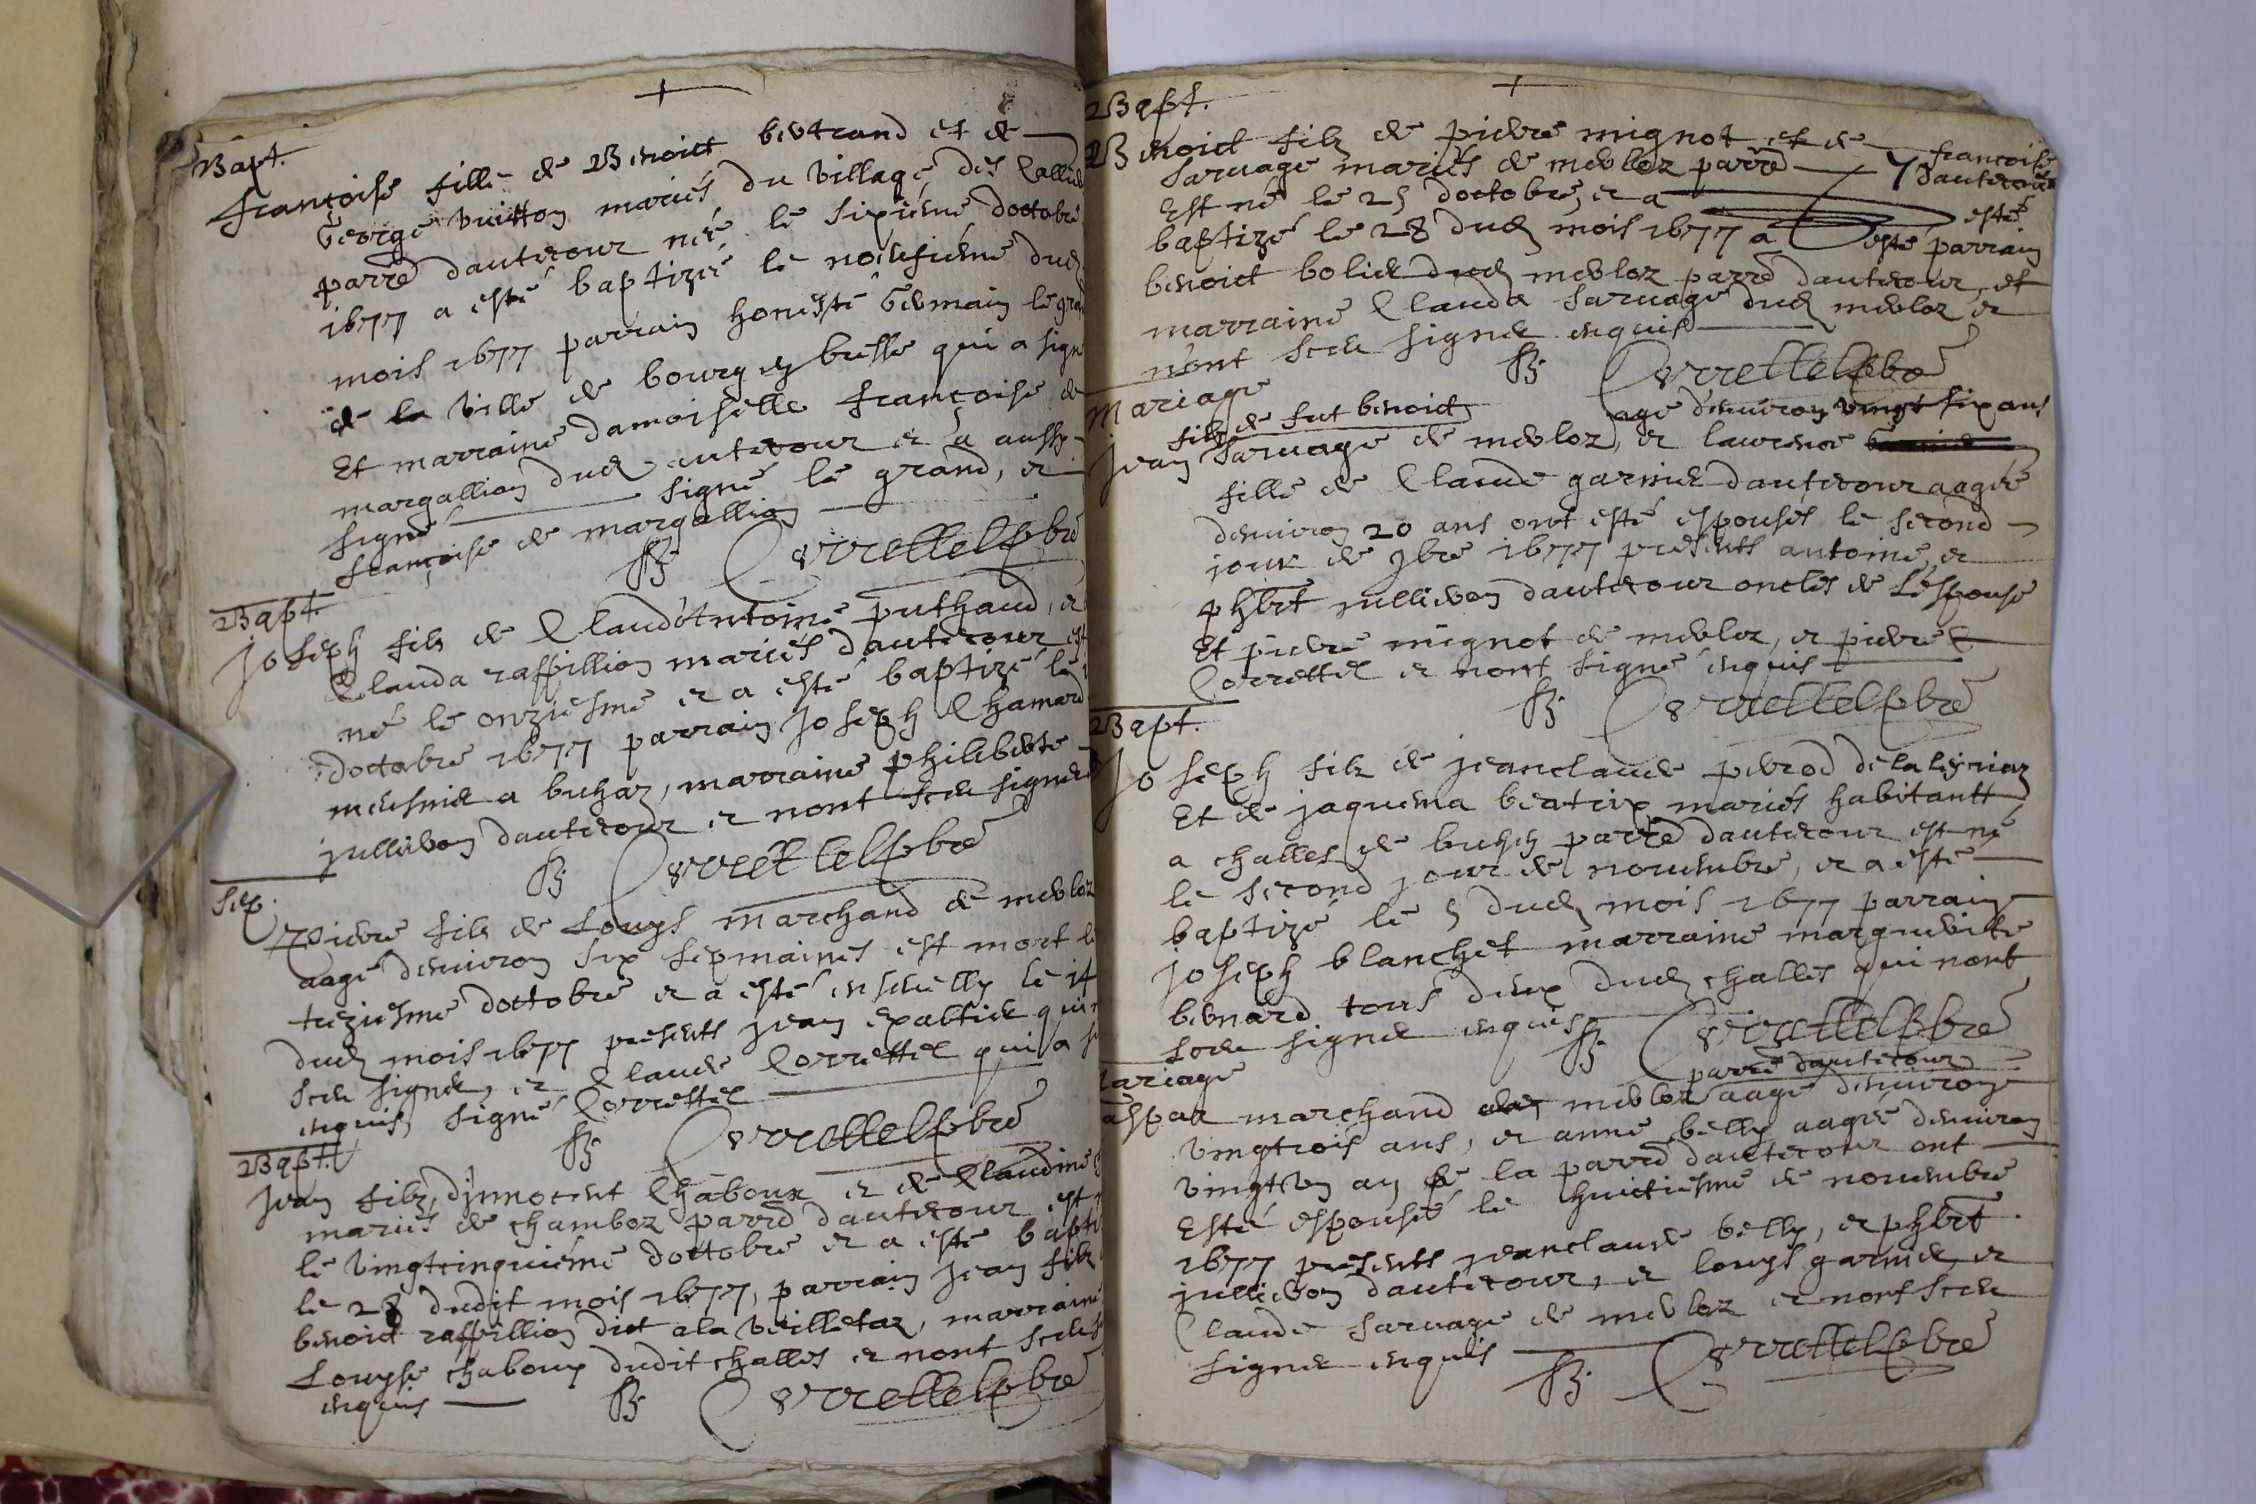 Bapt.
françoise fille de Benoict bertrand et de
George vuitton mariés du village des
parre dauterour née le sixiéme doctobre
1677 a esté baptizée le neufiéme dud
mois 1677 parrain honesté Germain legrand
de la ville de bourg en bresse qui a signé
Et marraine damoiselle françoise de
margallion dud auterour et a aussy
signé signé le grand, et
françoise de margallion
Correttel pbre
Bapt.
Joseph filz de Claud Antoine puthaud, et
Clauda raffillion mariés dauterour est
né le onziesme et a esté baptizé le
doctobre 1677 parrain Joseph Chamard
meusnier a buhaz, marraine philiberte
jullieron dauterour et nont sceu signer
Correttel pbre
Sep.
Pierre filz de Louys marchand de merloz
aagé denuiron six sepmaines est mort le
treziesme doctobre et a esté enseuelly le 14
dud mois 1677 presents jean
sceu signer, et Claude Correttel qui a
enquis signé Correttel
Correttel pbre
Bapt.
Jean filz dinnocent Chaboux et de Claudine
mariés de chamboz parre dauterour est
le vingtcinquiéme doctobre et a esté bapti
le 28 dudit mois 1677, parrain jean filz
benoict raffillion dict a la veilletaz, marraine
Louyse chaboux dudit challes et nont sceu
enquis
Correttel pbre
Bapt.
Benoict filz de pierre mignot et de françoise
Saruage mariés de merloz parre dauterour
Est né le 25 doctobre, et a esté
baptizé le 28 dud mois 1677 a esté parrain
benoict bolier dud merloz parre dauterour, et
marraine Clauda Saruage dud merloz et
nont sceu signer enquis
Correttel pbre
Mariage
filz de fut benoict agé denuiron vingt six ans
jean Saruage de merloz, et laurence
fille de Claude garnier dauterour aagée
denuiron 20 ans ont esté espousés le second
jour de 9bre 1677 presents antoine, et
phbrt jullieron dauterour oncles de Lespouse
Et pierre mignot de merloz, et pierre
Correttel et nont signé enquis
Correttel pbre
Bapt.
Joseph filz de jeanclaude perrod
Et de jaquema beatrix mariés habitantz
a challes de parre dauterour est né
le second jour de nouembre, et a esté
baptizé le 5 dud mois 1677 parrain
Joseph blanchet marraine marguerite
bernard tous deux dud challes qui nont
sceu signer enquis
Correttel pbre
Mariage parre dauterour
Gaspar marchand merloz aagé denuiron
vingtrois ans, et anne belly aagée denuiron
vingtvn an de la parre dauterour ont
Esté espousé le huictiesme de nouembre
1677 presents jeanclaude belly, et phbrt
jullieron dauterour, et louys garnier et
Claude Saruage de merloz et nont sceu
signer enquis
Correttel pbre